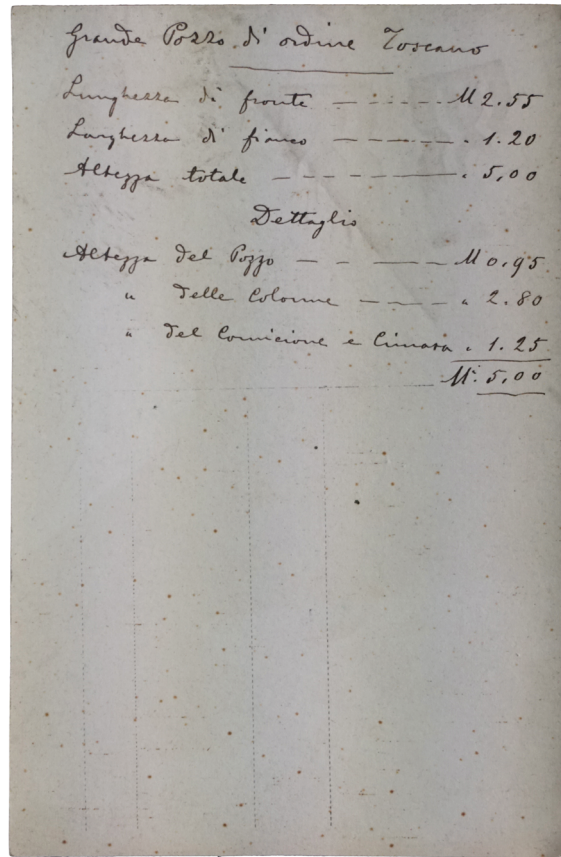 Grande Pozzo di ordine Toscano
Lunghezza di fronte — — — — M 2.55
Larghezza di fianco — — — — " 1.20
Altezza totale — — — — — " 5,00
Dettaglio
Altezza del Pozzo — — — — M 0.95
" delle Colonne — — — — " 2.80
" del Cornicione e Cimasa " 1.25
M. 5,00